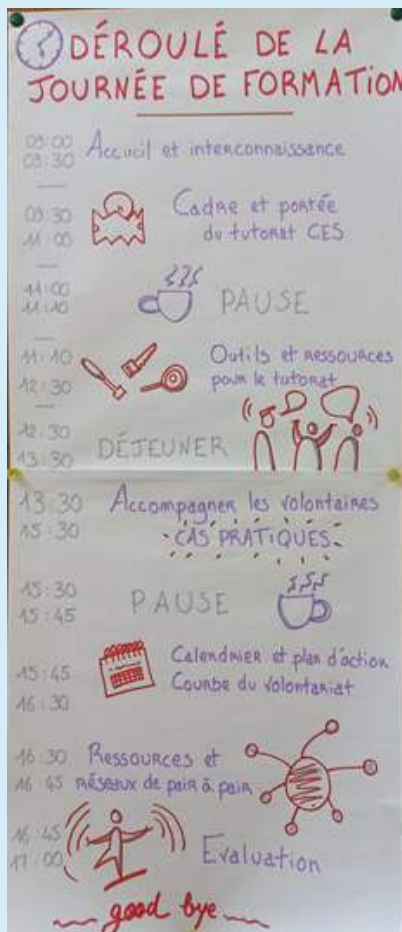 DÉROULÉ DE LA
JOURNÉE DE FORMATION
09:00 Accueil et interconnaissance
09:30
09:30 Cadre et portée
11:00 du tutorat CES
11:00 PAUSE
11:10
11:10 Outils et RESSOURCES
12:30 pour le tutorat
12:30 DÉJEUNER
13:30
13:30 Accompagner les volontaires
15:30 CAS PRATIQUES
15:30 PAUSE
15:45
15:45 Calendrier et plan d'action
16:30 Courbe du volontariat
16:30 Ressources et
16 45 réseaux de pair à pair
16 45 Evaluation
17:00
good bye